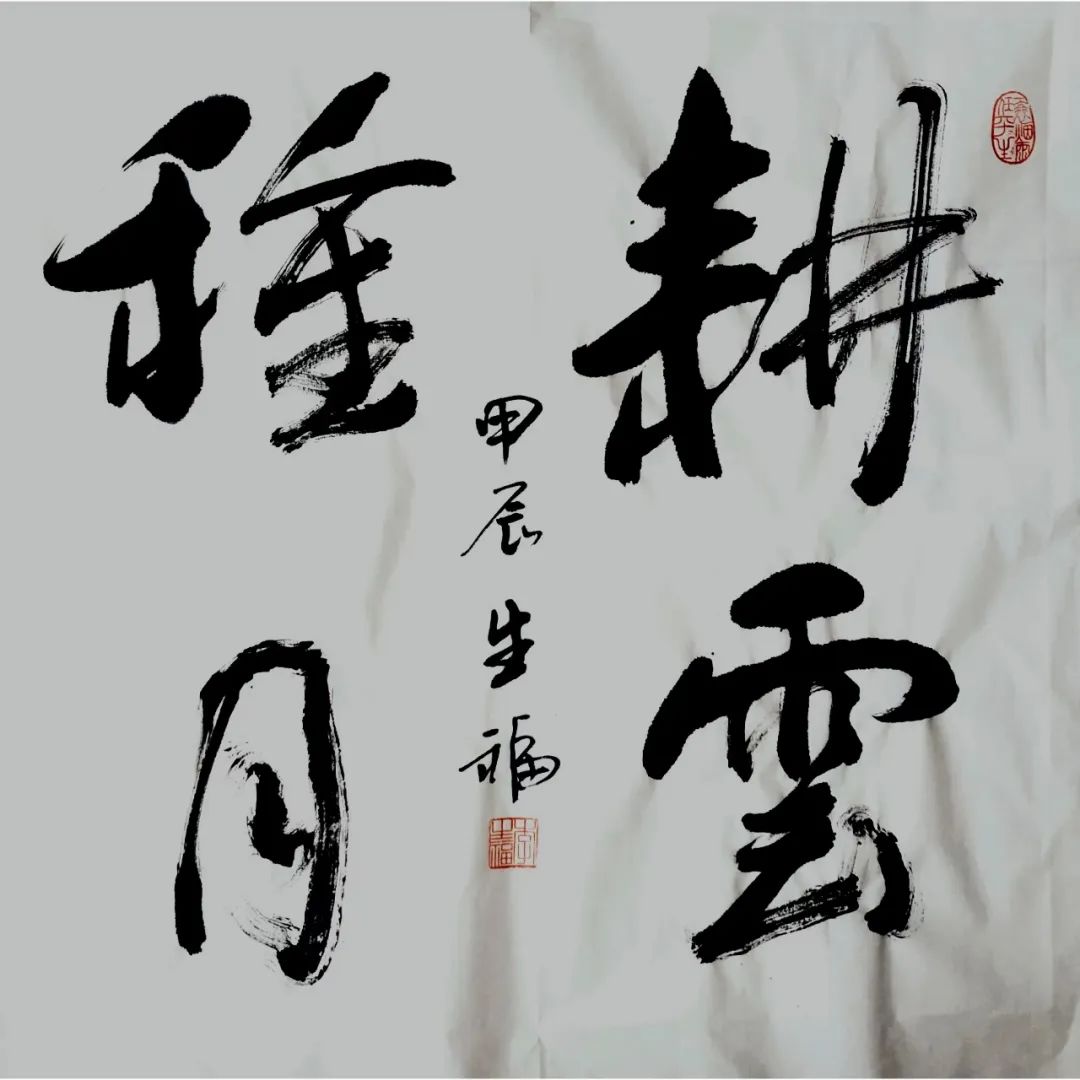 耕雲
種月
甲辰生福